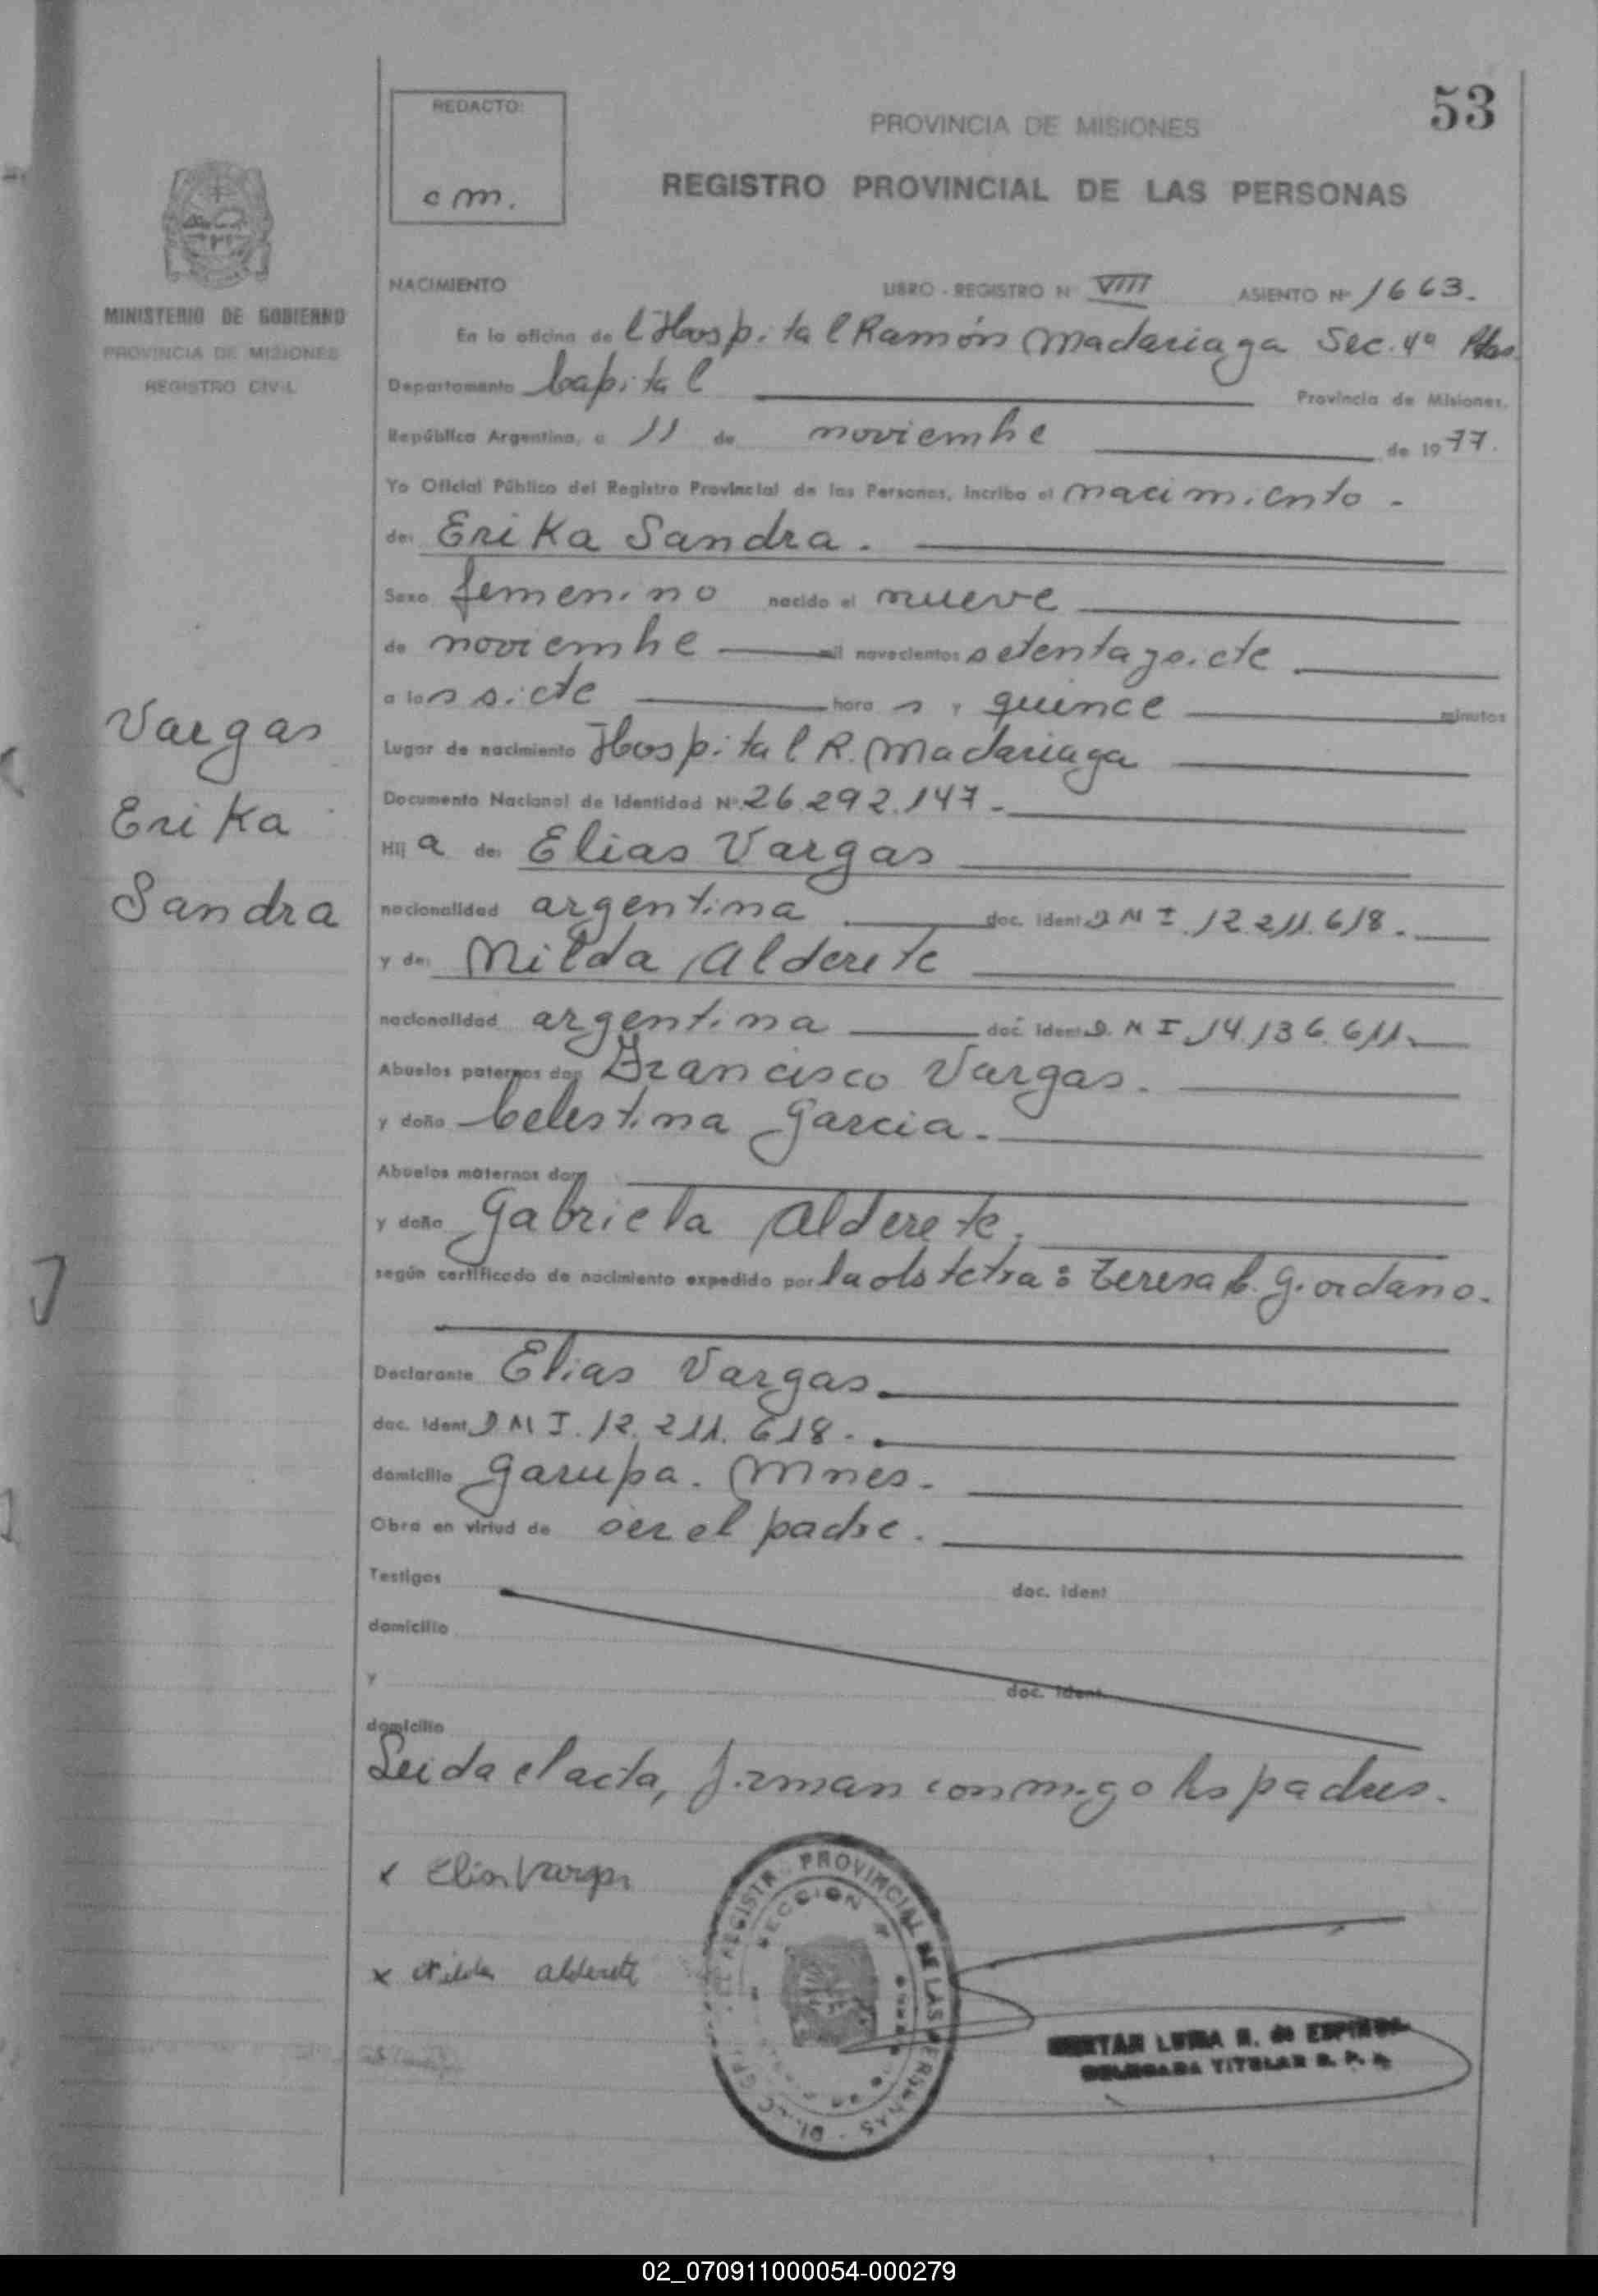 53
REDACTO:
c m.
PROVINCIA DE MISIONES
REGISTRO PROVINCIAL DE LAS PERSONAS
MINISTERIO DE GOBIERNO
PROVINCIA DE MISIONES
REGISTRO CIVIL
NACIMIENTO LIBRO - REGISTRO N° VIII ASIENTO N° 1663.
En la oficina de l Hospital Ramón Madariaga Sec. 4ª Pdas.
Departamento Capital Provincia de Misiones,
República Argentina, a 11 de noviembre de 1977.
Yo Oficial Público del Registro Provincial de las Personas, incribo el nacimiento -
de: Erika Sandra.
Sexo femenino nacido el nueve
de noviembre mil novecientos setenta y siete
a las siete hora s y quince minutos
Lugar de nacimiento Hospital R. Madariaga
Documento Nacional de Identidad N° 26.292.147-
Hij a de: Elias Vargas
nacionalidad argentina doc. ident D N I. 12.211.618.
y de: Nilda Alderete
nacionalidad argentina doc. ident D. N I. 14.136.611.
Abuelos paternos don Francisco Vargas.
y doña Celestina Garcia.
Abuelos maternos don
y doña Gabriela Alderete.
según certificado de nacimiento expedido por la obstetra: Teresa C. Giordano.
Declarante Elias Vargas.
doc. ident D N I. 12.211.618.
domicilio Garupa. Mnes.
Obra en virtud de ser el padre.
Testigos doc. ident
domicilio
y doc. ident
domicilio
Leida el acta, firman conmigo los padres.
Vargas
Erika
Sandra
x Elias Vargas
x Nilda alderete
REGISTR PROVINCIAL DE LAS PERSONAS
SECCION
LUISA R. de ESPINDOLA
DELEGADA TITULAR R. P. P.
02_070911000054-000279